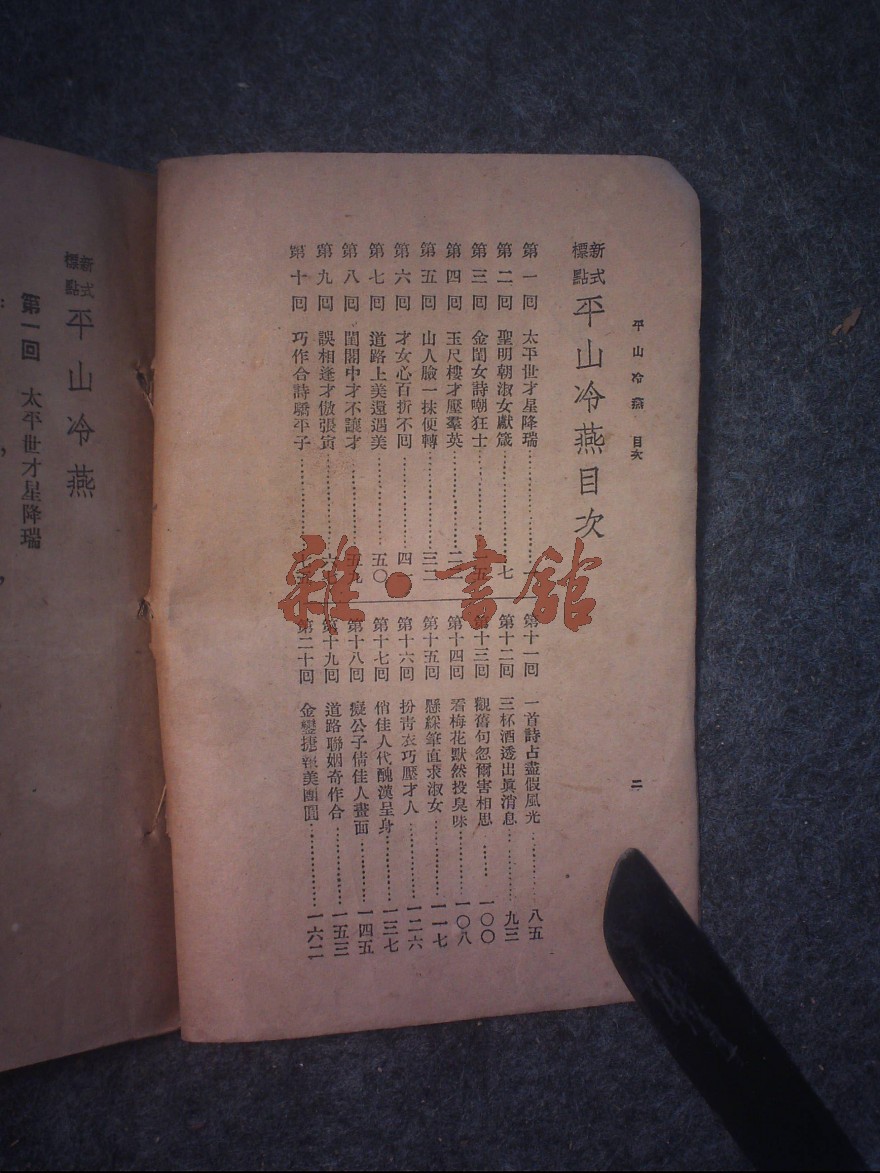 平山冷燕 目次
二
新式標點 平山冷燕目次
第一回 太平世才星降瑞…………一
第二回 聖明朝淑女獻箴…………七
第三回 金閨女詩嘲狂士…………一五
第四回 玉尺樓才壓羣英…………二二
第五回 山人臉一抹便轉…………三二
第六回 才女心百折不回…………四一
第七回 道路上美還遇美…………五〇
第八回 閨閣中才不讓才…………五九
第九回 誤相逢才傲張寅…………六七
第十回 巧作合詩驕平子…………
第十一回 一首詩占盡假風光…………八五
第十二回 三杯酒透出眞消息…………九三
第十三回 觀舊句忽爾害相思……一〇〇
第十四回 看梅花默然投臭味…………一〇八
第十五回 懸綵筆直求淑女…………一一七
第十六回 扮靑衣巧壓才人…………一二六
第十七回 俏佳人代醜漢呈身…………一三七
第十八回 癡公子倩佳人畫面…………一四五
第十九回 道路聯姻奇作合…………一五三
第二十回 金鑾捷報美團圓…………一六二
新式標點 平山冷燕
第一回 太平世才星降瑞
雜·書館